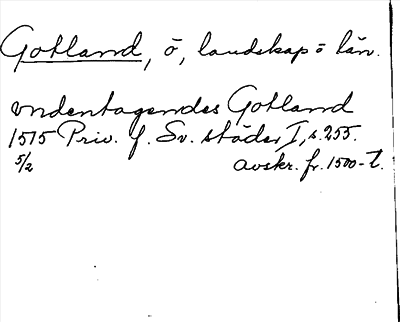 Gotland, ö, landskap o län.
vndentagendes Gotland
1515 Priv. f. Sv. städer I, s. 255.
5/2 avskr. fr. 1500-t.